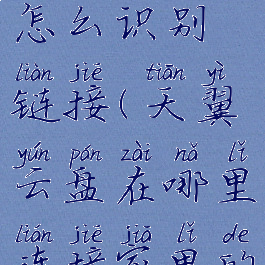 怎么识别
liàn jiē tiān yì
链接(天翼
yún pán zài nǎ lǐ
云盘在哪里
lián jiē jiā lǐ de
连接家里的